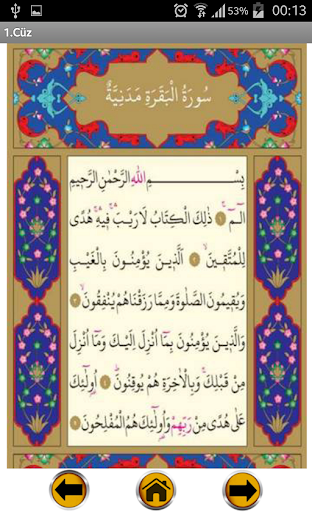 53% 00:13
1.Cüz
سُورَةُ الْبَقَرَةِ مَدَنِيَّةٌ
بِسْمِ اللهِ الرَّحْمٰنِ الرَّحِيمِ
الٓمٓ ۝١ ذٰلِكَ الْكِتَابُ لَا رَيْبَۚۛ فِيهِۚۛ هُدًى
لِلْمُتَّقِينَۙ ۝٢ اَلَّذِينَ يُؤْمِنُونَ بِالْغَيْبِ
وَيُقِيمُونَ الصَّلٰوةَ وَمِمَّا رَزَقْنَاهُمْ يُنْفِقُونَۙ ۝٣
وَالَّذِينَ يُؤْمِنُونَ بِمَٓا اُنْزِلَ اِلَيْكَ وَمَٓا اُنْزِلَ
مِنْ قَبْلِكَۚ وَبِالْاٰخِرَةِ هُمْ يُوقِنُونَۜ ۝٤ اُو۬لٰٓئِكَ
عَلٰى هُدًى مِنْ رَبِّهِمْ وَاُو۬لٰٓئِكَ هُمُ الْمُفْلِحُونَ ۝٥